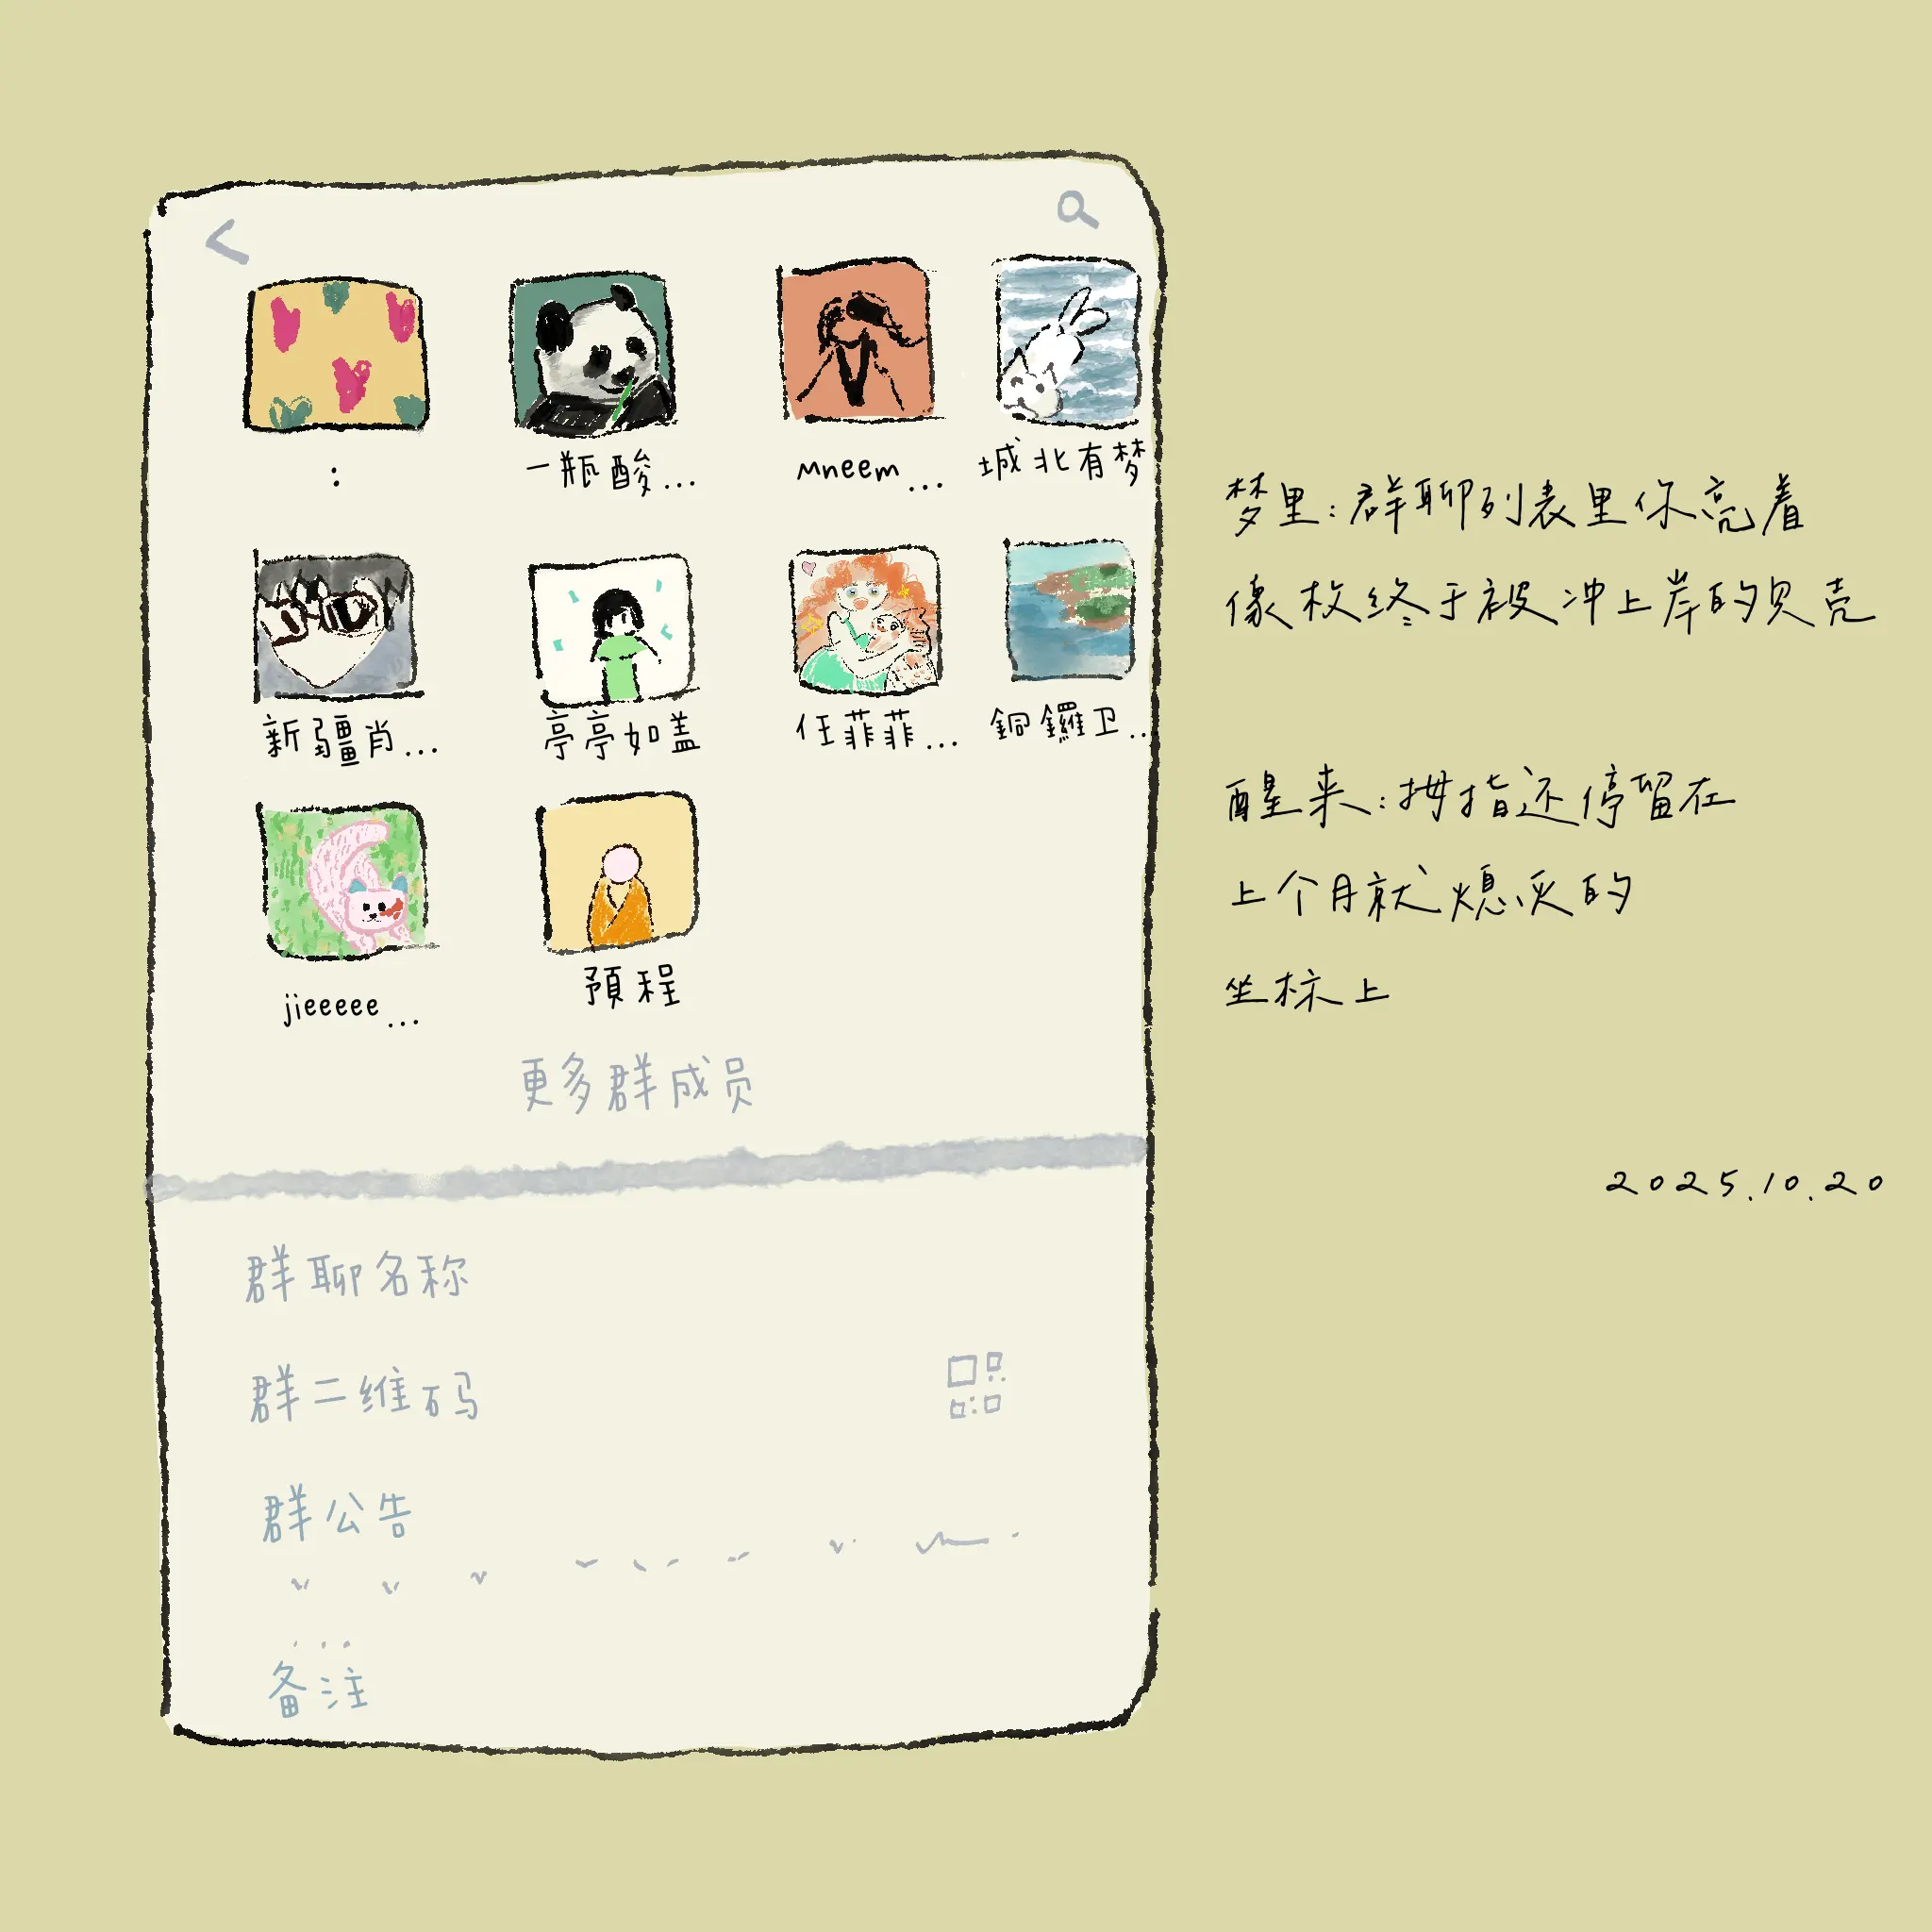 :
一瓶酸...
mneem...
城北有梦
新疆肖...
亭亭如盖
任菲菲...
銅鑼卫...
jieeeee...
預程
更多群成员
群聊名称
群二维码
群公告
备注
梦里:群聊列表里你亮着
像枚终于被冲上岸的贝壳
醒来:拇指还停留在
上个月就熄灭的
坐标上
2025.10.20